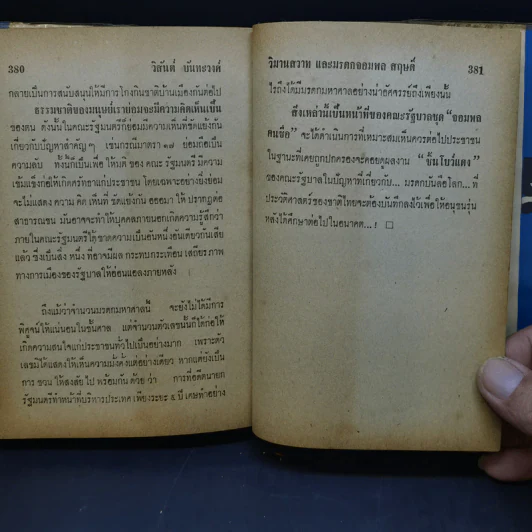 380 วิสันต์ บันทะวงศ์
กลายเป็นการสนับสนุนให้มีการ โกงกินชาติบ้านเมืองกันต่อไป
ธรรมชาติของมนุษย์เราย่อมจะมีความคิดเห็นเป็น
ของตน ดังนั้นในคณะรัฐมนตรีก็ย่อมมีความเห็นที่ขัดแย้งกัน
เกี่ยวกับปัญหาสำคัญๆ เช่นกรณีมาตรา ๑๗ ย่อมถือเป็น
ความลับ ทั้งนี้ก็เพื่อ ให้มติ ของ คณะ รัฐมนตรี มีความ
เข้มแข็งก่อให้เกิดศรัทธาแก่ประชาชน โดยเฉพาะอย่างยิ่งย่อม
จะไม่แสดง ความ คิด เห็นที่ ขัดแย้งกัน ออกมา ให้ ปรากฏต่อ
สาธารณชน มันอาจจะทำให้บุคคลภายนอกเกิดความรู้สึกว่า
ภายในคณะรัฐมนตรีได้ ขาดความเป็นอันหนึ่งอันเดียวกันเสีย
แล้ว ซึ่งเป็นสิ่ง หนึ่ง ที่อาจมีผล กระทบกระเทือน เสถียร ภาพ
ทางการเมืองของรัฐบาลให้อ่อนแอลงภายหลัง
ถึงแม้ว่าจำนวนมรดกมหาศาลนี้ จะยังไม่ได้มีการ
พิสูจน์ให้แน่นอนในชั้นศาล แต่จำนวนตัวเลขนั้นก็ได้ก่อให้
เกิดความสนใจแก่ประชาชนทั่วไปเป็นอย่างมาก เพราะตัว
เลขมิได้แสดงให้เห็นความมั่งคั่งแต่อย่างเดียว หากแต่ยังเป็น
การ ชวน ให้สงสัย ไป พร้อมกัน ด้วย ว่า การที่อดีตนายก
รัฐมนตรีทำหน้าที่บริหารประเทศ เพียงระยะ ๕ ปี เศษทำอย่าง
วิมานสวาท และมรดกจอมพล สฤษดิ์ 381
ไรถึงได้มีมรดกมหาศาลอย่างน่าอัศจรรย์ถึงเพียงนั้น
สิ่งเหล่านี้เป็นหน้าที่ของคณะรัฐบาลชุด “จอมพล
คนซื่อ” จะได้ดำเนินการที่เหมาะสมเห็นควรต่อไปประชาชน
ในฐานะที่เคยถูกปกครองจะคอยดูผลงาน
ของคณะรัฐบาลในปัญหาที่เกี่ยวกับ... มรดกบันลือโลก... ที่
ประวัติศาสตร์ของชาติไทยจะต้องบันทึกลงไว้เพื่อให้อนุชนรุ่น
หลังได้ศึกษาต่อไปในอนาคต...! □